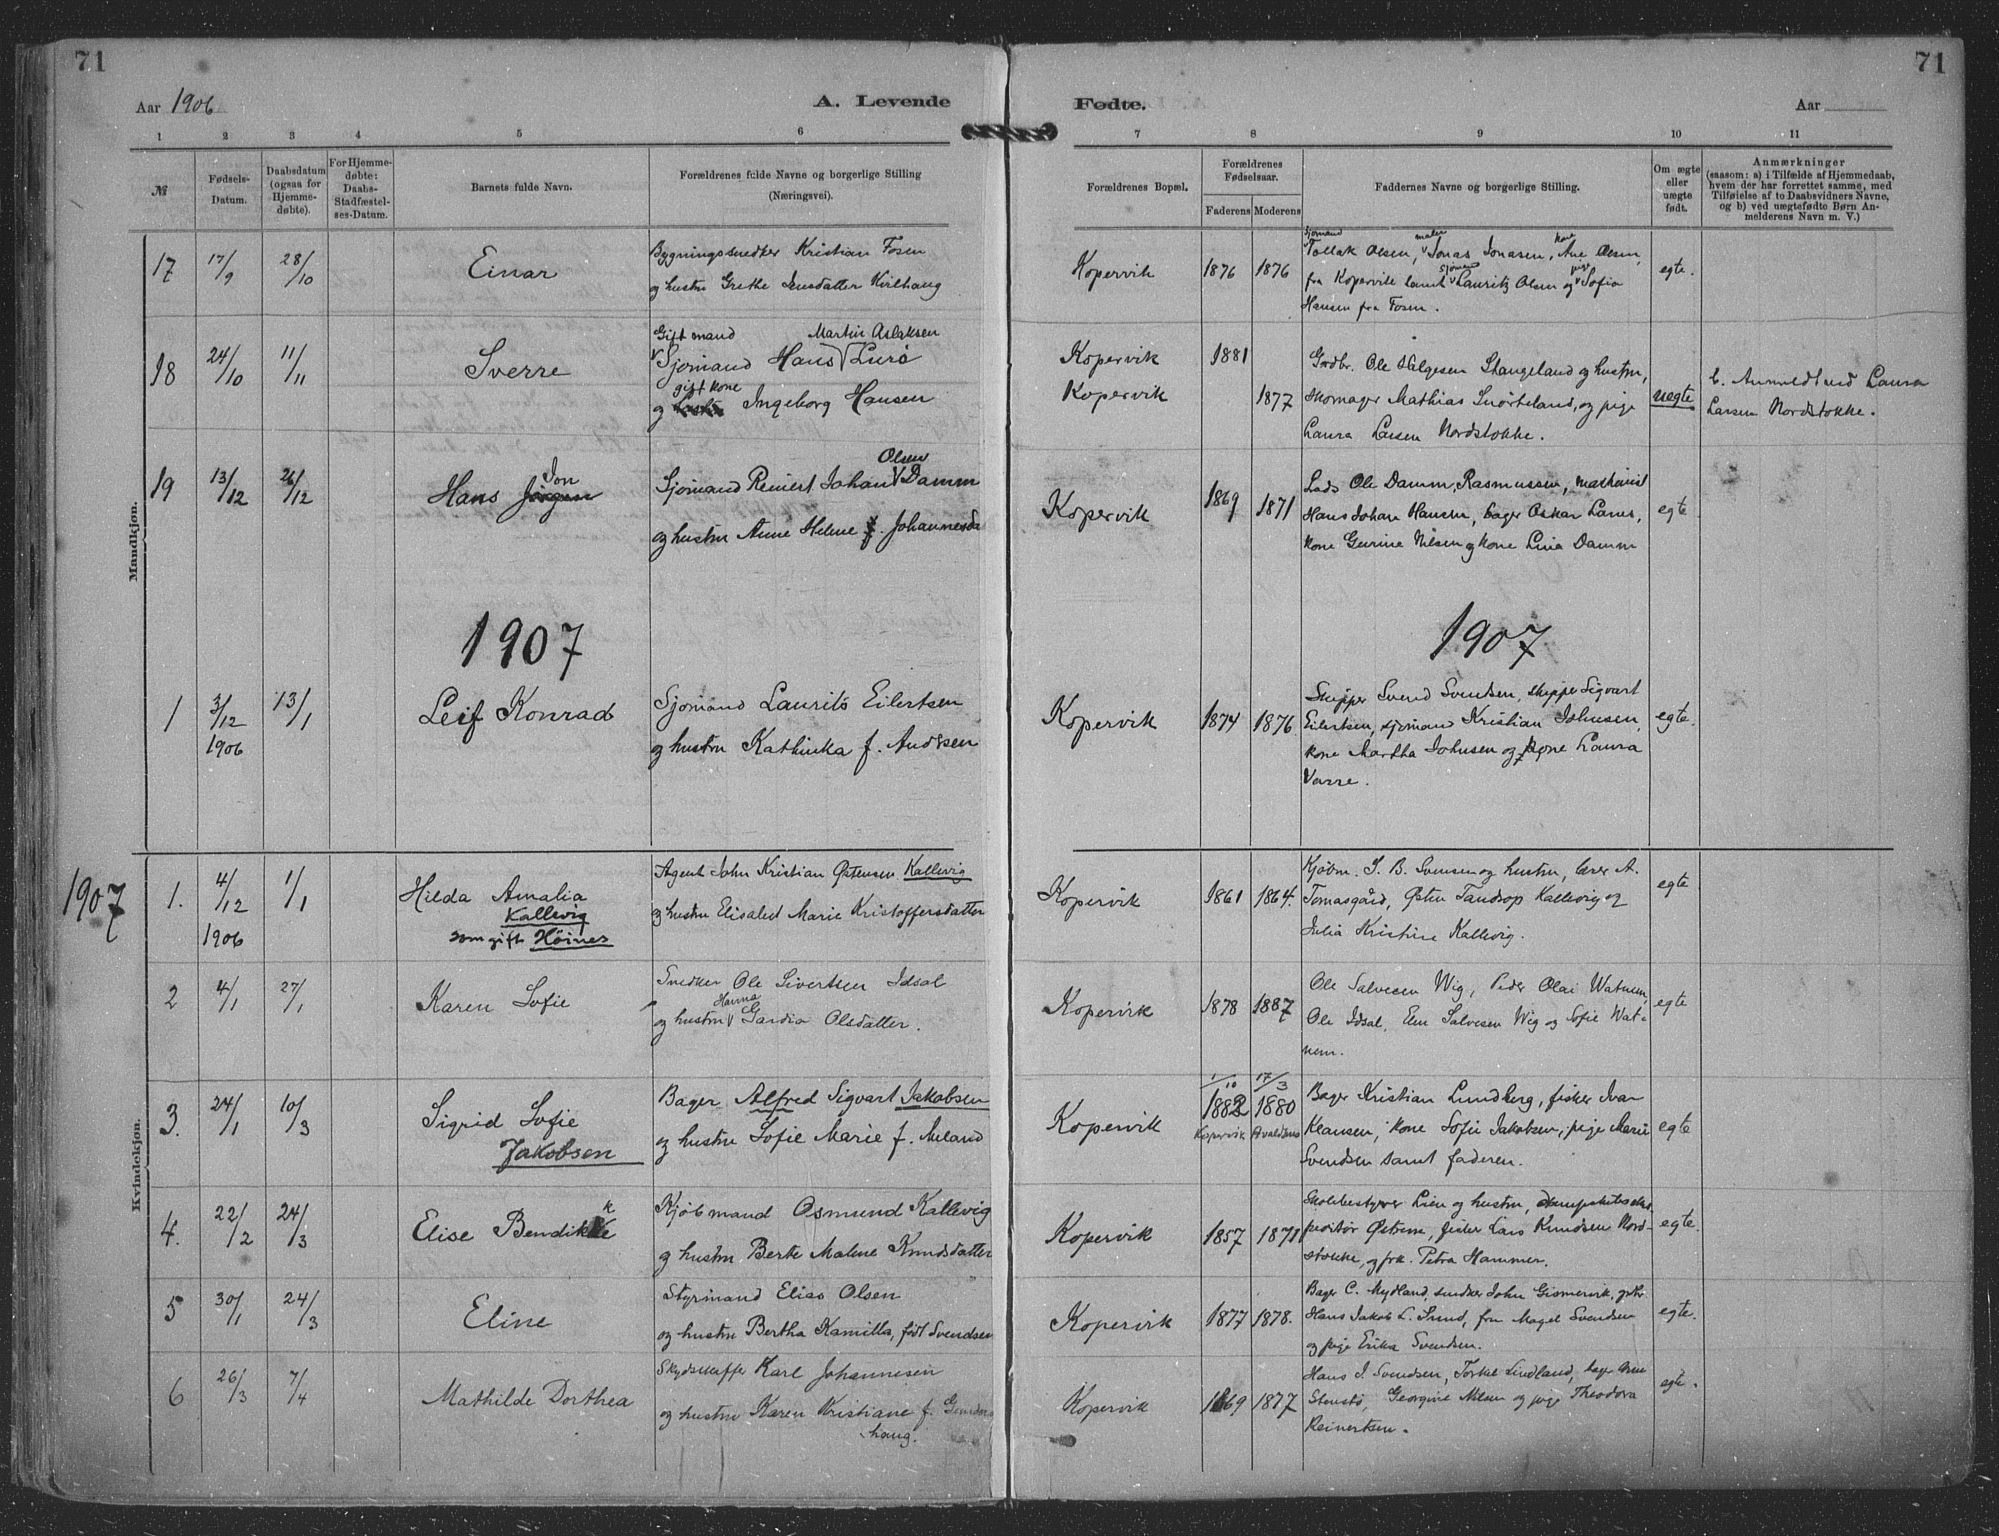 71
71
Aar 1906
A. Levende
Fødte.
Aar
1 2 3 4 5 6 7 8 9 10 11
№
Fødsels-Datum.
Daabsdatum (ogsaa for Hjemmedøbte).
For Hjemmedøbte: Daabs-Stadfæstelses-Datum.
Barnets fulde Navn.
Forældrenes fulde Navne og borgerlige Stilling (Næringsvei).
Forældrenes Bopæl.
Forældrenes Fødselsaar.
Faderens Moderens
Faddernes Navne og borgerlige Stilling.
Om ægte eller uægte født.
Anmærkninger
(saasom: a) i Tilfælde af Hjemmedaab, hvem der har forrettet samme, med Tilføielse af to Daabsvidners Navne, og b) ved uægtefødte Børn Anmelderens Navn m. V.)
Mandkjøn.
17 17/9 28/10 Einar
Bygningssnedker Kristian Fosen
og hustru Grethe Jensdatter Kirlhaug
Kopervik 1876 1876
sjømand maler kone
Tollak Olsen, Jonas Jonasen, Ane Olsen,
sjømand pige
fra Kopervik samt Lauritz Olsen og Sofia
Hansen fra Fosen.
egte.
18 24/10 11/11 Sverre
Gift mand Martin Aslaksen
Sjømand Hans Lurø
gift kone
og Ingeborg Hansen
Kopervik 1881
Kopervik 1877
Grdbr. Ole Valgesen Stangeland og hustru,
Skomager Mathias Snørteland, og pige
Laura Larsen Nordstokke.
uegte
b. Anmeldt ved Laura
Larsen Nordstokke.
19 13/12 26/12 Hans Jon
Olsen
Sjømand Reinert Johan Damm
og hustru Anne Helene f. Johannesda
Kopervik 1869 1871
Lods Ole Damm, Rasmussen, maskinist
Hans Johan Hansen, bager Oskar Larsen,
kone Gurine Nilsen og kone Lina Damm
egte
1907
1907
1 3/12 1906 13/1 Leif Konrad
Sjømand Laurits Eilertsen
og hustru Kathinka f. Andsen
Kopervik 1874 1876
Skipper Svend Svendsen, skipper Sigvart
Eilertsen, sjømand Kristian Johnsen,
kone Martha Johnsen og kone Laura
Varre.
egte.
1907
Kvindekjøn.
1. 4/12 1906 1/1 Hilda Amalia
Kallevig
som gift Høines
Agent John Kristian Østensen Kallevig
og hustru Elisabet Marie Kristoffersdatter
Kopervik 1861 1864.
Kjøbm. S. B. Svensen og hustru, lærer A.
Tomasgård, Østen Tandrop Kallevig og
Julia Kristine Kallevig.
egte
2 4/1 27/1 Karen Sofie
Snedker Ole Sivertsen Idsal
Hanna
og hustru Gardia Olsdatter.
Kopervik 1878 1887
Ole Salvesen Wig, Peder Olai Watnem,
Ole Idsal, Elen Salvesen Wig og Sofie Wat-
nem.
egte
3. 24/1 10/3 Sigrid Sofie
Jakobsen
Bager Alfred Sigvart Jakobsen
og hustru Sofie Marie f. Meland
Kopervik 1/10 1882 Kopervik 17/3 1880 Avaldsnes
Bager Kristian Lundberg, fisker Ivar
Klausen, kone Sofie Jakobsen, pige Marie
Svendsen samt faderen.
egte
4. 22/2 24/3 Elise Bendikke
Kjøbmand Osmund Kallevig
og hustru Berte Malene Knudsdatter
Kopervik 1857 1871
Skolebestyrer Lien og hustru, dampskibseks-
peditør Østrem, fisker Lars Knudsen Nord-
stokke, og frk. Petra Hammer.
egte.
5 30/1 24/3 Eline
Styrmand Elias Olsen
og hustru Bertha Kamilla, født Svendsen
Kopervik 1877 1878.
Bager C. Mydland, snedker John Gismervik,
Hans Jakob L. Sund, fru Magel Svendsen
og pige Erika Svendsen.
egte.
6 26/3 7/4 Mathilde Dorthea
Skydsskaffer Karl Johannesen
og hustru Karen Kristiane f.
haug.
Kopervik 1869 1877
Hans J. Svendsen, Torkel Lindland, bager Arne
Stensø, Georgine Nilsen og pige Theodora
Reinertsen.
egte.